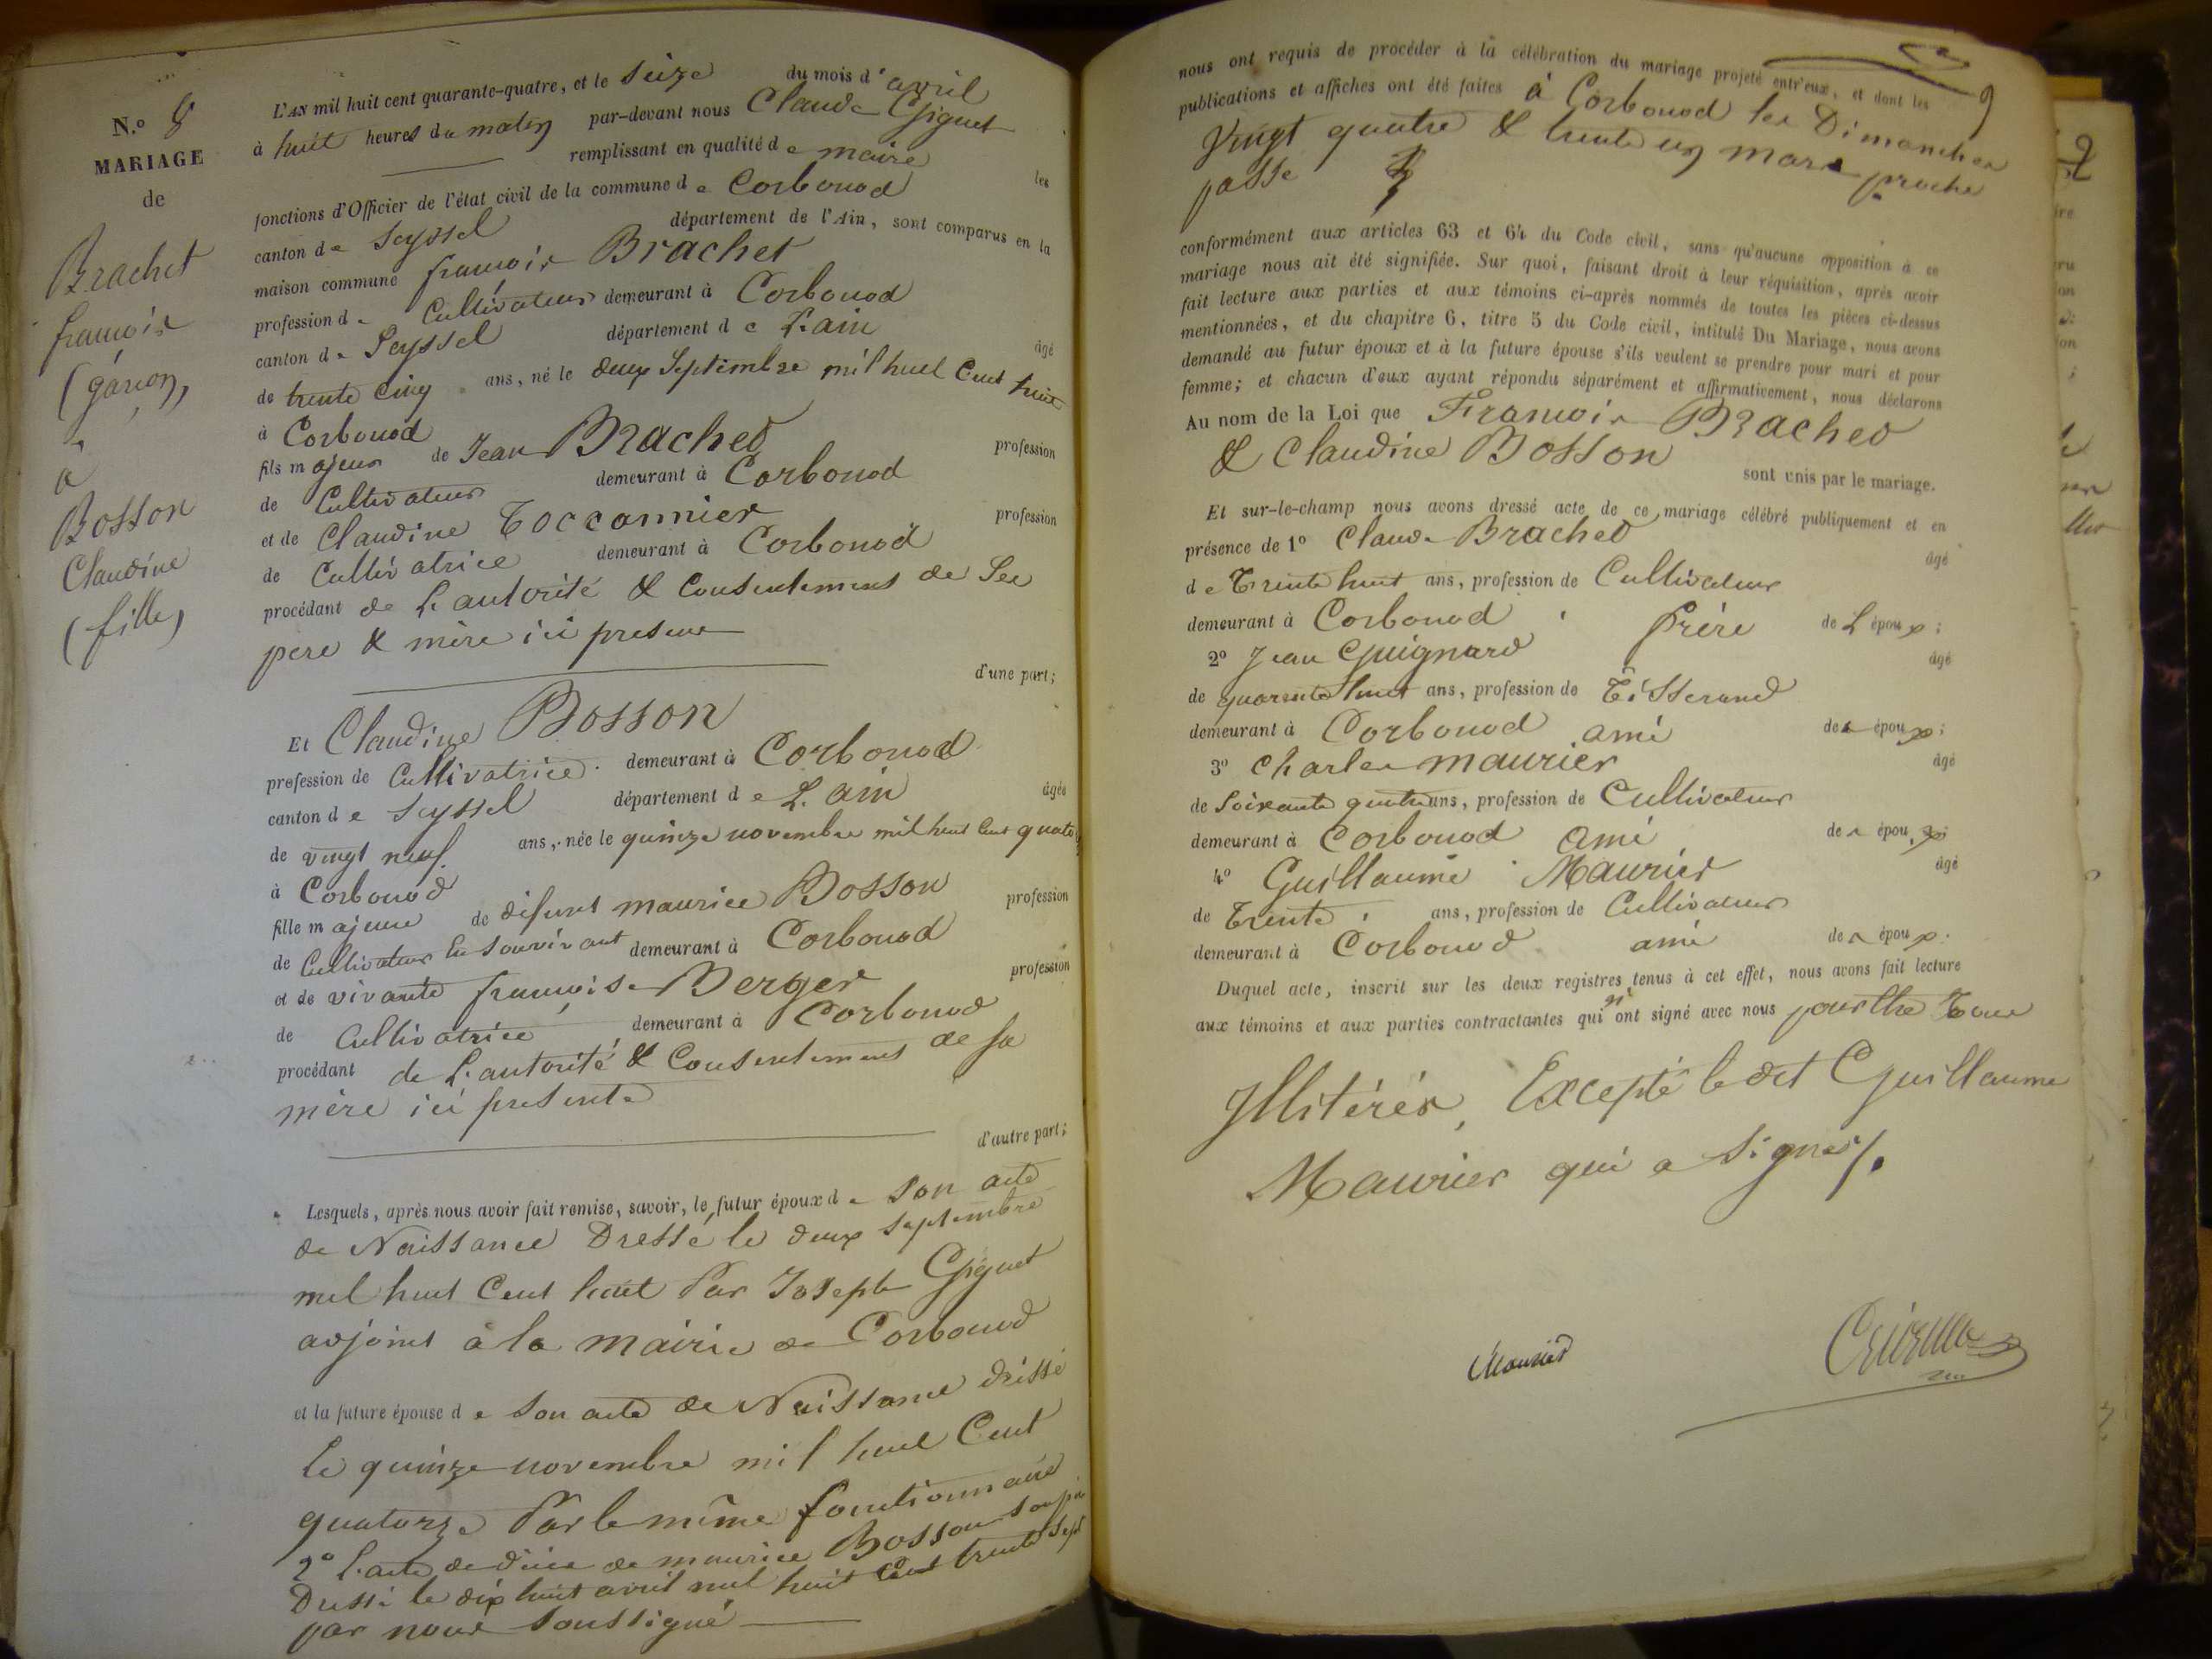 N.o 8
MARIAGE
de
Brachet
françois
(garçon)
à
Bosson
Claudine
(fille)
L'AN mil huit cent quarante-quatre, et le seize du mois d'avril
à huit heures du matin par-devant nous Claude Giguet
remplissant en qualité de maire les
fonctions d'Officier de l'état civil de la commune de Corbonod
canton de Seyssel département de l'Ain, sont comparus en la
maison commune françois Brachet
profession de Cultivateur demeurant à Corbonod
canton de Seyssel département de L'ain âgé
de trente cinq ans, né le deux Septembre mil huit Cent huit
à Corbonod
fils majeur de Jean Brachet profession
de Cultivateur demeurant à Corbonod
et de Claudine Toccannier profession
de Cultivatrice demeurant à Corbonod
procédant de L'autorité & Consentement de Ses
pere & mère ici present
d'une part;
Et Claudine Bosson
profession de Cultivatrice demeurant à Corbonod
canton de Seyssel département de L'ain âgée
de vingt neuf ans, née le quinze novembre mil huit Cent quatorze
à Corbonod
fille majeure de défunt maurice Bosson profession
de Cultivateur En Souvivant demeurant à Corbonod
et de vivante françoise Berger profession
de Cultivatrice demeurant à Corbonod
procédant de L'autorité & Consentement de Sa
mère ici presente
d'autre part;
Lesquels, après nous avoir fait remise, savoir, le futur époux de son acte
de Naissance Dressé le deux septembre
mil huit Cent huit Par Joseph Giguet
adjoint à la mairie de Corbonod
et la future épouse de Son acte de Naissance dréssé
le quinze novembre mil huit Cent
quatorze Par le même fonctionnaire
2o L'acte de décès de maurice Bosson son père
Dressé le dix huit avril mil huit Cent trente sept
par nous Soussigné
nous ont requis de procéder à la célébration du mariage projeté entr'eux, et dont les
publications et affiches ont été faites à Corbonod les Dimanches
Vingt quatre & trente un mars proche
passé
conformément aux articles 63 et 64 du Code civil, sans qu'aucune opposition à ce
mariage nous ait été signifiée. Sur quoi, faisant droit à leur réquisition, après avoir
fait lecture aux parties et aux témoins ci-après nommés de toutes les pièces ci-dessus
mentionnées, et du chapitre 6, titre 5 du Code civil, intitulé Du Mariage, nous avons
demandé au futur époux et à la future épouse s'ils veulent se prendre pour mari et pour
femme; et chacun d'eux ayant répondu séparément et affirmativement, nous déclarons
Au nom de la Loi que François Brachet
& Claudine Bosson
sont unis par le mariage.
Et sur-le-champ nous avons dressé acte de ce mariage célébré publiquement et en
présence de 1o Claude Brachet âgé
de Trente huit ans, profession de Cultivateur
demeurant à Corbonod frère de L'époux;
2o Jean Guignard âgé
de quarante huit ans, profession de Tisserand
demeurant à Corbonod ami des époux;
3o Charles maurier âgé
de Soixante quatre ans, profession de Cultivateur
demeurant à Corbonod Ami des époux;
4o Guillaume Maurier âgé
de Trente ans, profession de Cultivateur
demeurant à Corbonod ami des époux.
Duquel acte, inscrit sur les deux registres tenus à cet effet, nous avons fait lecture
aux témoins et aux parties contractantes qui n'ont signé avec nous pour Etre Tous
Illitérés, Excepté le dit Guillaume
Maurier qui a Signé
Maurier